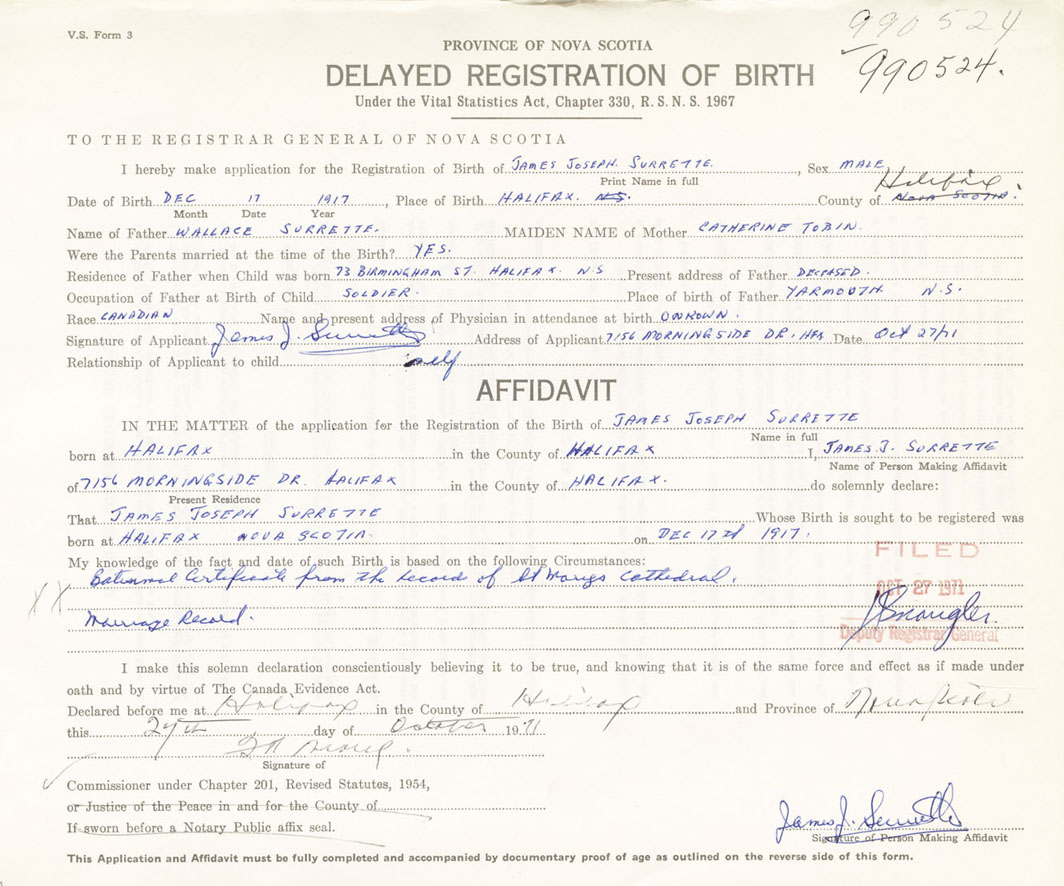 990524
V.S. Form 3
990524.
PROVINCE OF NOVA SCOTIA
DELAYED REGISTRATION OF BIRTH
Under the Vital Statistics Act, Chapter 330, R.S.N.S. 1967
TO THE REGISTRAR GENERAL OF NOVA SCOTIA
I hereby make application for the Registration of Birth of JAMES JOSEPH SURRETTE. , Sex MALE
Print Name in full
Halifax.
Date of Birth DEC 17 1917 , Place of Birth HALIFAX. N.S. County of NOVA SCOTIA.
Month Date Year
Name of Father WALLACE SURRETTE. MAIDEN NAME of Mother CATHERINE TOBIN.
Were the Parents married at the time of the Birth? YES.
Residence of Father when Child was born 73 BIRMINGHAM ST. HALIFAX. N.S Present address of Father DECEASED.
Occupation of Father at Birth of Child SOLDIER. Place of birth of Father YARMOUTH N.S.
Race CANADIAN Name and present address of Physician in attendance at birth ONKOWN.
Signature of Applicant James J. Surrette Address of Applicant 7156 MORNINGSIDE DR, HFX Date Oct 27/71
Relationship of Applicant to child self
AFFIDAVIT
IN THE MATTER of the application for the Registration of the Birth of JAMES JOSEPH SURRETTE
Name in full
born at HALIFAX in the County of HALIFAX I, JAMES J. SURRETTE
Name of Person Making Affidavit
of 7156 MORNINGSIDE DR. HALIFAX in the County of HALIFAX. do solemnly declare:
Present Residence
That JAMES JOSEPH SURRETTE Whose Birth is sought to be registered was
born at HALIFAX NOVA SCOTIA on DEC 17 1917.
My knowledge of the fact and date of such Birth is based on the following Circumstances:
FILED
Certificate from the record of St Marys Cathedral.
OCT 27 1971
XX
Marriage Record.
Deputy Registrar General
I make this solemn declaration conscientiously believing it to be true, and knowing that it is of the same force and effect as if made under
oath and by virtue of The Canada Evidence Act.
Declared before me at Halifax in the County of Halifax and Province of Nova Scotia
this 27th day of October 1971
Signature of
Commissioner under Chapter 201, Revised Statutes, 1954,
or Justice of the Peace in and for the County of
If sworn before a Notary Public affix seal.
James J. Surrette
Signature of Person Making Affidavit
This Application and Affidavit must be fully completed and accompanied by documentary proof of age as outlined on the reverse side of this form.